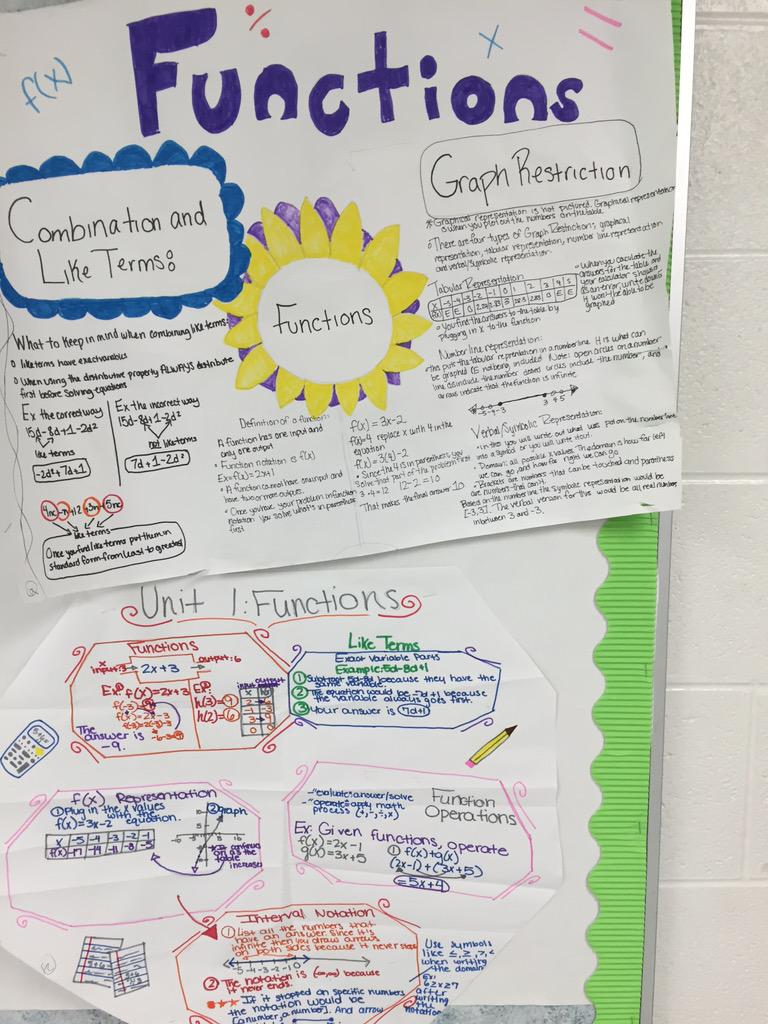 Functions
f(x)
x
Combination and
Like Terms:
What to Keep in mind when combining like terms:
like terms have exact variables
When using the distributive property ALWAYS distribute
first before solving equations
Ex the correct way
15d-8d+1-2d²
like terms
-2d²+7d+1
Ex the incorrect way
15d-8d+1-2d²
not like terms
7d+1-2d²
like terms
Once you find like terms put them in
standard form from least to greatest
Functions
Definition of a function:
A function has one input and
only one output
Function notation is f(x)
Ex=f(x)=2x+1
A function cannot have an input and
have two or more outputs.
Once you have your problem in function
notation you solve what's in parenthesis
first
f(x)=3x-2
f(x)=4 replace x with 4 in the
equation
f(x)=3(4)-2
Since the 4 is in parenthesis, you
solve that part of the problem first
3·4=12 12-2=10
That makes the final answer 10
Graph Restriction
Graphical representation is not pictured. Graphical representation
is when you plot out the numbers on the table.
There are four types of Graph Restriction: graphical
representation, tabular representation, number line representation
and verbal/symbolic representation.
Tabular Representation
X -5 -4 -3 -2 -1 0 1 2 3 4 5
you find the answers to the table by
plugging in x to the function
When you calculate the
answers for the table and
your calculator shows
as an error, write down E
it won't be able to be
graphed
Number line representation:
arrows indicate that the function is infinite.
-5 -4 -3
3 4 5
Verbal/Symbolic Representation:
In this you will write out what was put on the number line
into a symbol or you will write it out.
Domain: all possible x values. The domain is how far left
we can go and how far right we can go
Brackets are numbers that can be touched and parenthesis
are numbers that can't.
Based on the number line the symbolic representation would be
[-3,3]. The verbal version for this would be all real numbers
inbetween 3 and -3.
Unit 1: Functions
Functions
x
input: 3
2x+3
output: 6
Ex: f(x)=2x+3
f(-3)
f(x)=2x-3
f(-3)=2(-3)-3
-6-3=-9
The
answer is
-9.
Ex:
h(3)=9
h(2)=6
input output
Like Terms
Exact Variable Parts
Example: 5d-8d+1
1 Subtract 5d-8d because they have the
same variable.
2 The equation would be -7d+1 because
the variable always goes first.
3 your answer is 7d+1
f(x) Representation
1 Plug in the x values
with the
f(x)=3x-2 equation.
x -5 -4 -3 -2 -1
f(x) -17 -14 -11 -8 -5
2 graph
continue
on as the
table
increases
-evaluate: answer/solve
-operate: apply math
process (+,-,÷,x)
Function
Operations
Ex: Given functions, operate
f(x)=2x-1
g(x)=3x+5
1 f(x)+g(x)
(2x-1)+(3x+5)
=5x+4
Interval Notation
1 List all the numbers that
have an answer. Since it is
infinite then you draw arrows
on both sides because it never stops
-5 -4 -3 -2 -1 0
2 The notation is (-∞,∞) because
it never ends.
If it stopped on specific numbers
the notation would be
[a number, a number]. And arrow
Use symbols
like ≤, ≥, >, <
when writing
the domain
Ex:
6≥x≥7
after
writing
the
notation